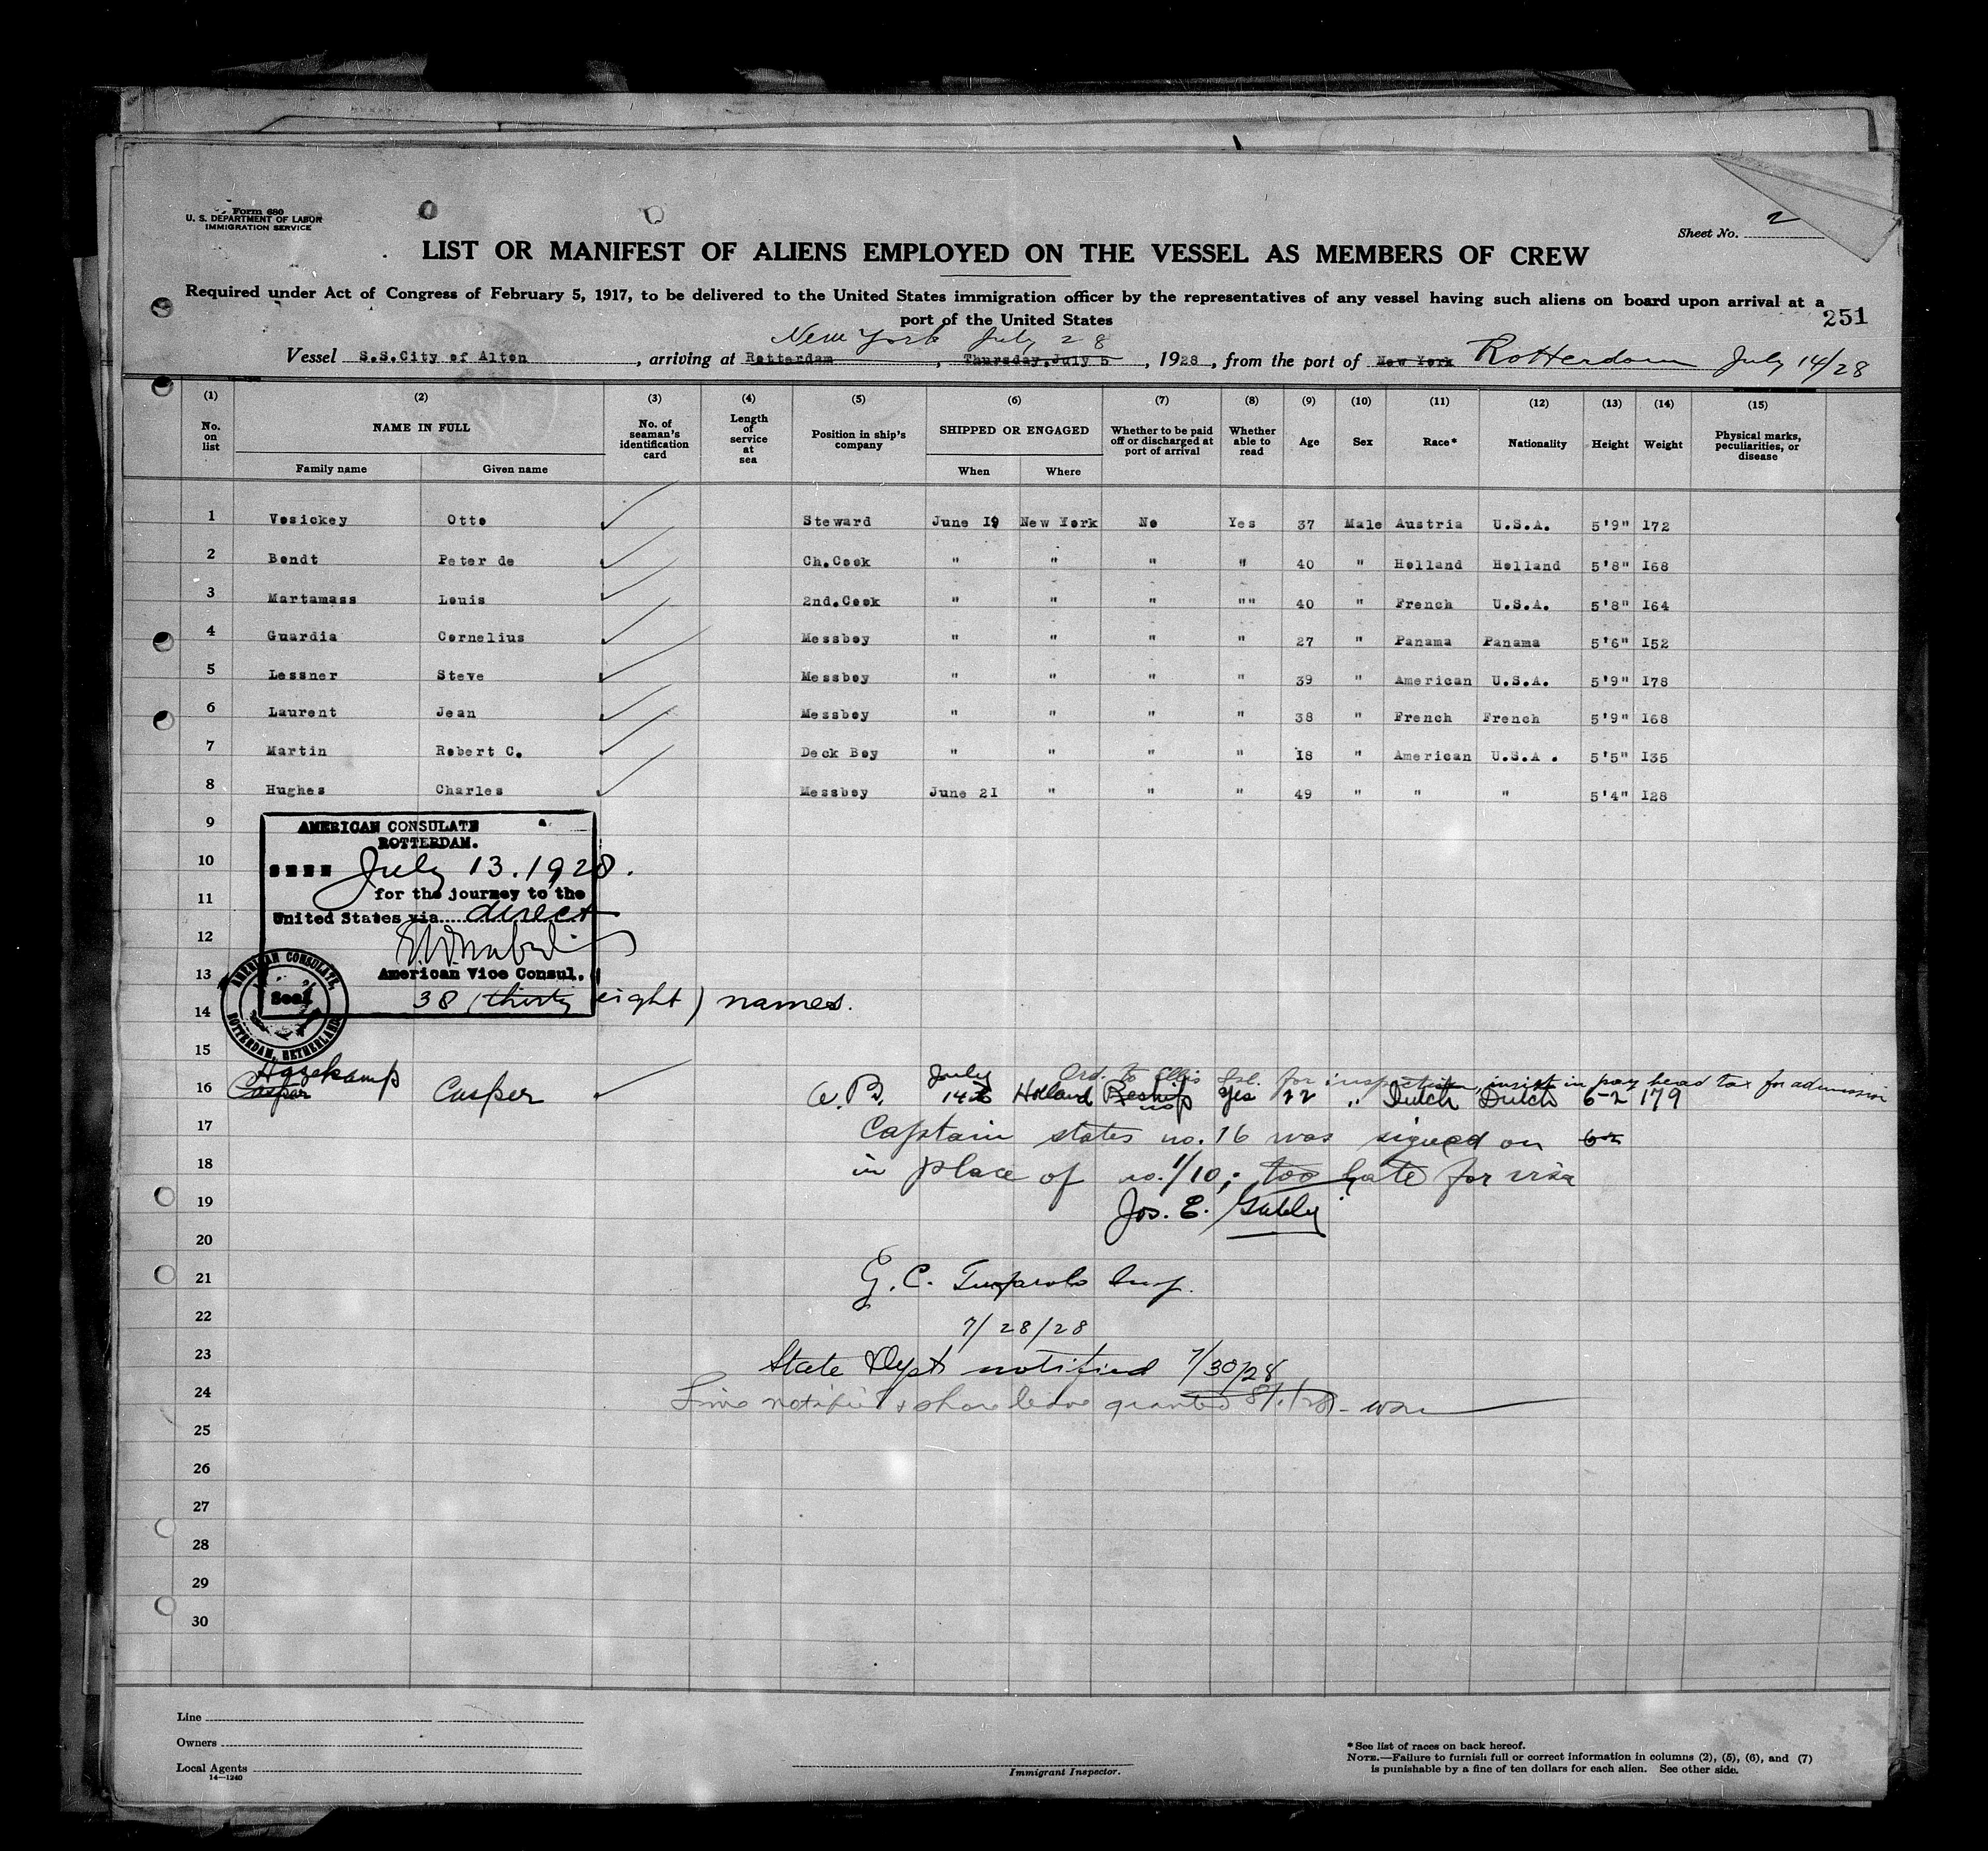 Form 680
U. S. DEPARTMENT OF LABOR
IMMIGRATION SERVICE
Sheet No. 2
LIST OR MANIFEST OF ALIENS EMPLOYED ON THE VESSEL AS MEMBERS OF CREW
Required under Act of Congress of February 5, 1917, to be delivered to the United States immigration officer by the representatives of any vessel having such aliens on board upon arrival at a
port of the United States
251
New York July 28
Vessel S.S.City of Alton, arriving at Rotterdam, Thursday,July 5, 1928, from the port of New York Rotterdam July 14/28
(1) (2) (3) (4) (5) (6) (7) (8) (9) (10) (11) (12) (13) (14) (15)
No. on list NAME IN FULL Family name Given name No. of seaman's identification card Length of service at sea Position in ship's company SHIPPED OR ENGAGED When Where Whether to be paid off or discharged at port of arrival Whether able to read Age Sex Race* Nationality Height Weight Physical marks, peculiarities, or disease
1 Vesickey Otto Steward June 19 New York No Yes 37 Male Austria U.S.A. 5'9" I72
2 Bendt Peter de Ch.Cook " " " " 40 " Holland Holland 5'8" I68
3 Martamass Louis 2nd.Cook " " " "" 40 " French U.S.A. 5'8" I64
4 Guardia Cornelius Messboy " " " " 27 " Panama Panama 5'6" I52
5 Lessner Steve Messboy " " " " 39 " American U.S.A. 5'9" I78
6 Laurent Jean Messboy " " " " 38 " French French 5'9" I68
7 Martin Robert C. Deck Boy " " " " I8 " American U.S.A. 5'5" I35
8 Hughes Charles Messboy June 2I " " " 49 " " " 5'4" I28
9
AMERICAN CONSULATE
ROTTERDAM.
10
SEEN July 13. 1928.
11
for the journey to the
United States via direct
12
13
American Vice Consul.
AMERICAN CONSULATE, ROTTERDAM, NETHERLANDS
Seal
38 (thirty eight) names.
14
15
Hazekamp July Ord. to Ellis Isl. for inspection, insist in pay head tax for admission
16 Casper Casper W. B. 14 Holland Reship no Yes 22 " Dutch Dutch 6-2 179
17 Captain states no. 16 was signed on
18 in place of no. 1/10; too late for visa
19 Jos. E.
20
21 G. C.
22 7/28/28
23 State Dept notified 7/30/28
24 Line notified & shore leave granted
25
26
27
28
29
30
Line
Owners
Local Agents
14—1240
Immigrant Inspector.
*See list of races on back hereof.
NOTE.—Failure to furnish full or correct information in columns (2), (5), (6), and (7)
is punishable by a fine of ten dollars for each alien. See other side.